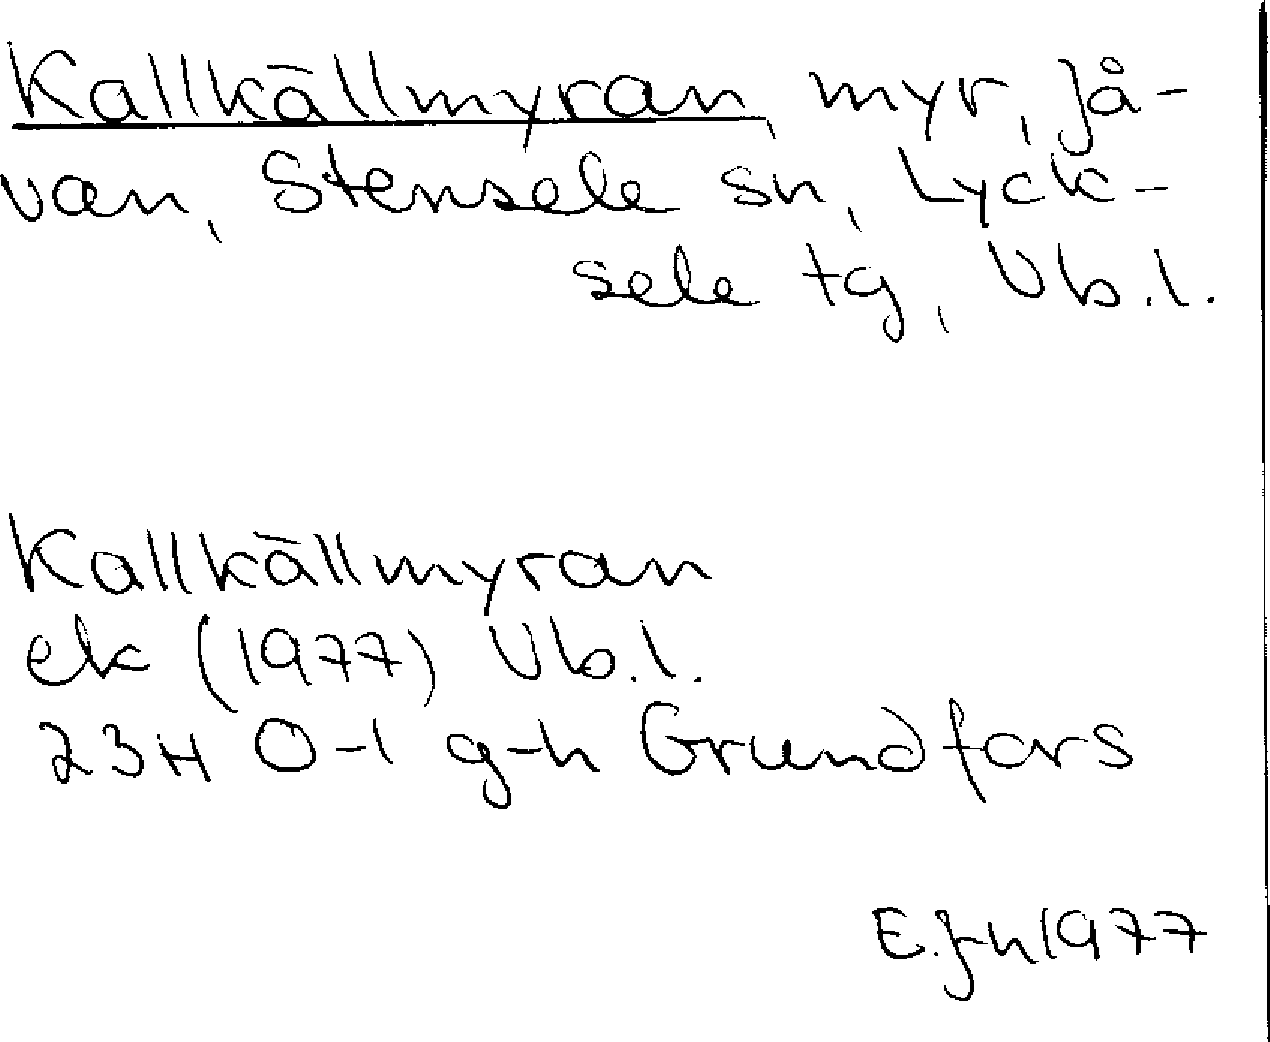 Kallkällmyran, myr, Jå-
van, Stensele sn, Lyck-
sele tg, Vb.l.
Kallkällmyran
ek (1977) Vb.l.
23H 0-1 g-h Grundfors
E.J-n 1977